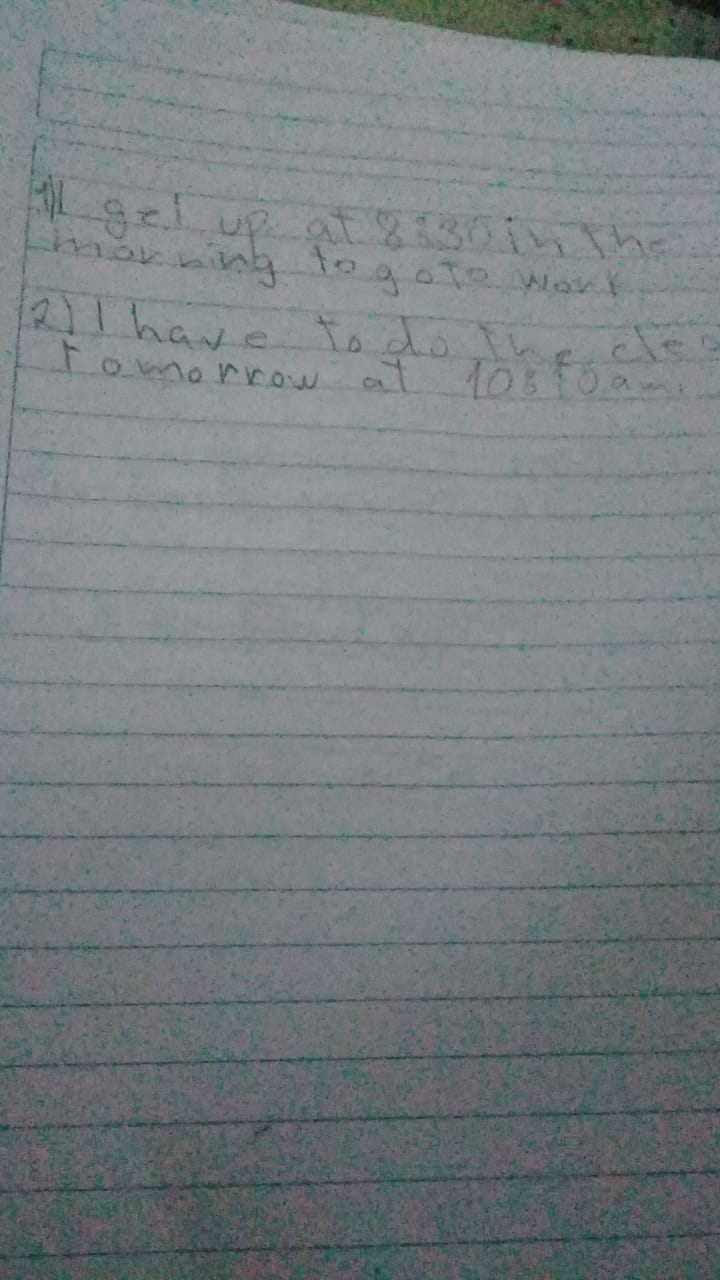 1)I get up at 8:30 in the
morning to go to work
2) I have to do the
tomorrow at 10:10 am.